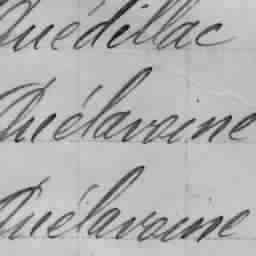 Quédillac
Quélavoine
Quélavoine